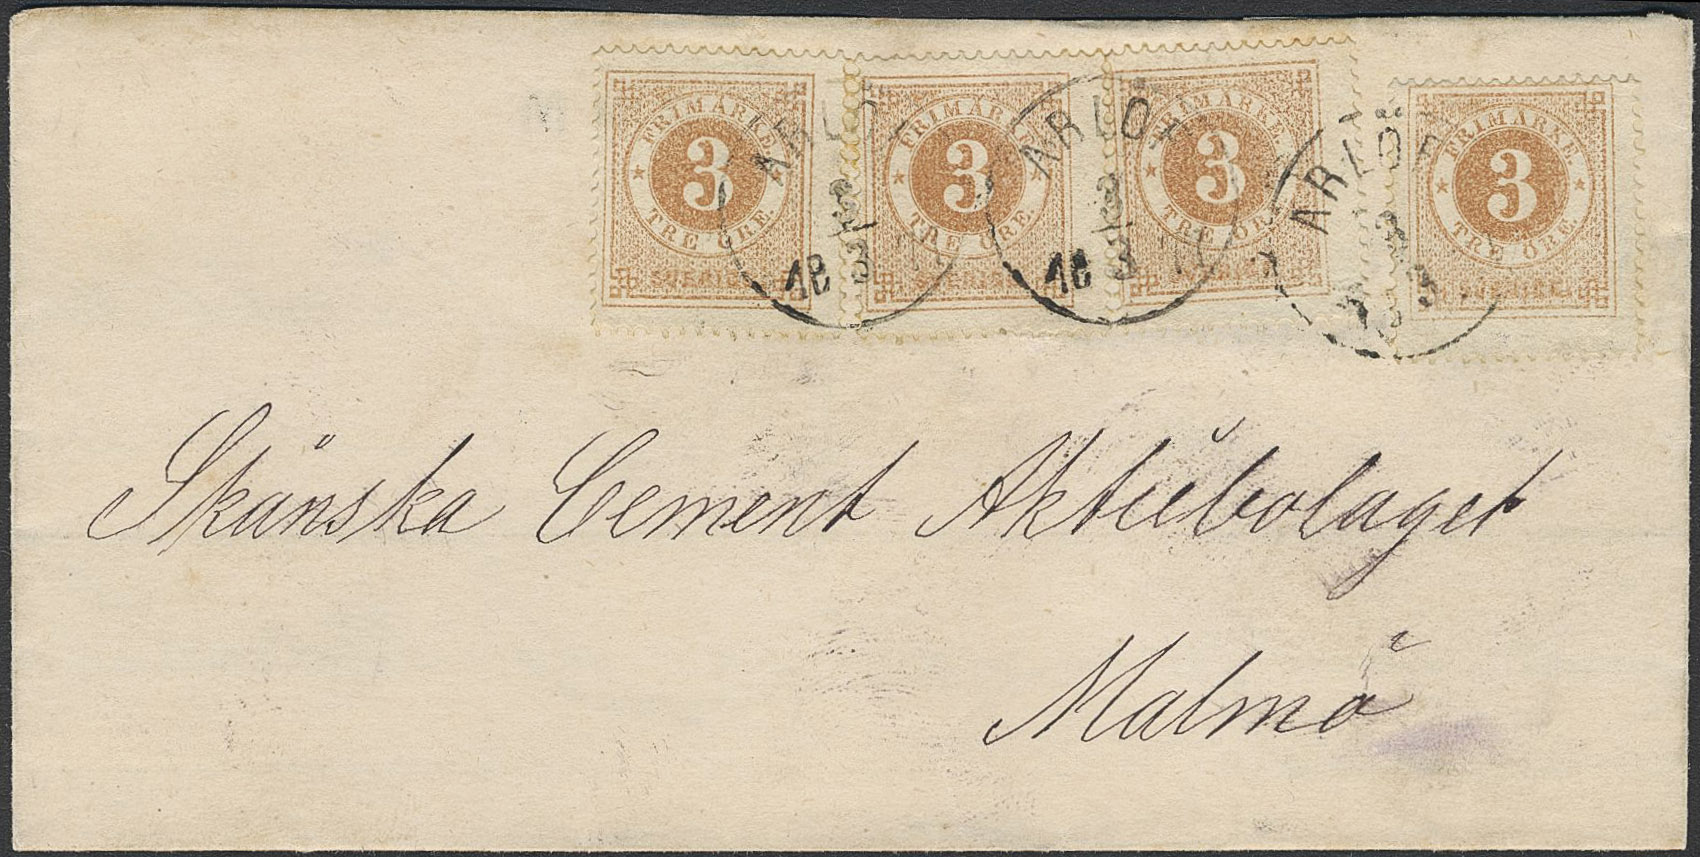 FRIMÄRKE 3 TRE ÖRE. SVERIGE
FRIMÄRKE 3 TRE ÖRE. SVERIGE
FRIMÄRKE 3 TRE ÖRE. SVERIGE
FRIMÄRKE 3 TRE ÖRE. SVERIGE
ARLÖF
ARLÖF
ARLÖF
Skånska Cement Aktiebolaget
Malmö